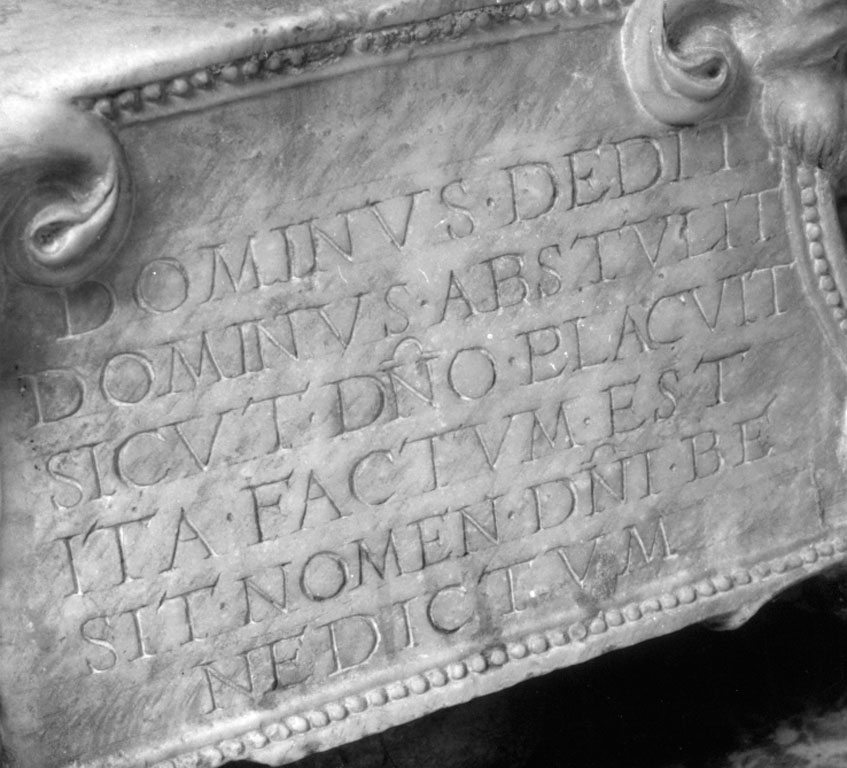 DOMINVS·DEDIT
DOMINVS·ABSTVLIT
SICVT·DÑO·PLACVIT
ITA·FACTVM·EST
SIT·NOMEN·DÑI·BE
NEDICTVM